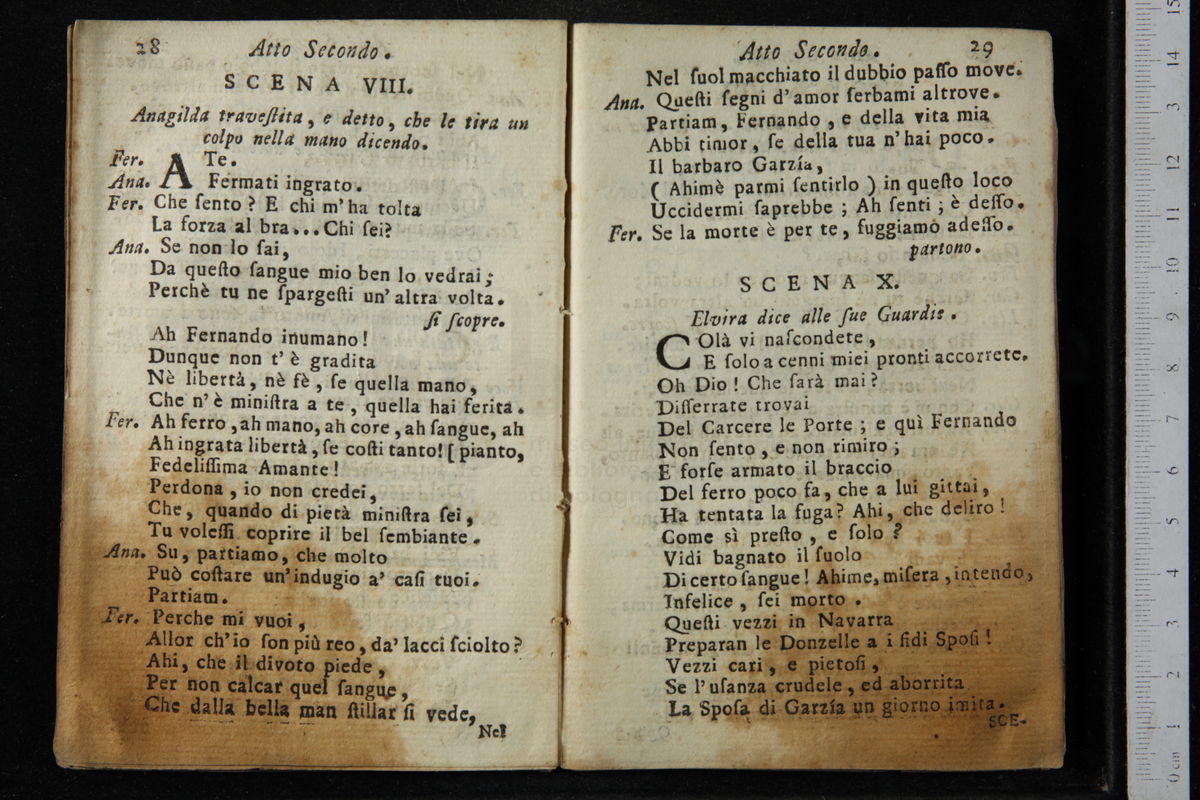 28 Atto Secondo.
SCENA VIII.
Anagilda traveſtita, e detto, che le tira un
colpo nella mano dicendo.
Fer. A Te.
Ana. Fermati ingrato.
Fer. Che ſento? E chi m'ha tolta
La forza al bra... Chi ſei?
Ana. Se non lo ſai,
Da queſto ſangue mio ben lo vedrai;
Perchè tu ne ſpargeſti un'altra volta.
ſi ſcopre.
Ah Fernando inumano!
Dunque non t'è gradita
Nè libertà, nè fè, ſe quella mano,
Che n'è miniſtra a te, quella hai ferita.
Fer. Ah ferro, ah mano, ah core, ah ſangue, ah
Ah ingrata libertà, ſe coſti tanto! [pianto,
Fedeliſſima Amante!
Perdona, io non credei,
Che, quando di pietà miniſtra ſei,
Tu voleſſi coprire il bel ſembiante.
Ana. Su, partiamo, che molto
Può coſtare un'indugio a' caſi tuoi.
Partiam.
Fer. Perche mi vuoi,
Allor ch'io ſon più reo, da' lacci ſciolto?
Ahi, che il divoto piede,
Per non calcar quel ſangue,
Che dalla bella man ſtillar ſi vede,
Nel
Atto Secondo. 29
Nel ſuol macchiato il dubbio paſſo move.
Ana. Queſti ſegni d'amor ſerbami altrove.
Partiam, Fernando, e della vita mia
Abbi timor, ſe della tua n'hai poco.
Il barbaro Garzía,
( Ahimè parmi ſentirlo ) in queſto loco
Uccidermi ſaprebbe; Ah ſenti; è deſſo.
Fer. Se la morte è per te, fuggiamo adeſſo.
partono.
SCENA X.
Elvira dice alle ſue Guardie.
COlà vi naſcondete,
E ſolo a cenni miei pronti accorrete.
Oh Dio! Che ſarà mai?
Diſſerrate trovai
Del Carcere le Porte; e quì Fernando
Non ſento, e non rimiro;
E forſe armato il braccio
Del ferro poco fa, che a lui gittai,
Ha tentata la fuga? Ahi, che deliro!
Come sì preſto, e ſolo?
Vidi bagnato il ſuolo
Di certo ſangue! Ahime, miſera, intendo,
Infelice, ſei morto.
Queſti vezzi in Navarra
Preparan le Donzelle a i fidi Spoſi!
Vezzi cari, e pietoſi,
Se l'uſanza crudele, ed aborrita
La Spoſa di Garzía un giorno imita.
SCE-
0 cm 1 2 3 4 5 6 7 8 9 10 11 12 3 14 15